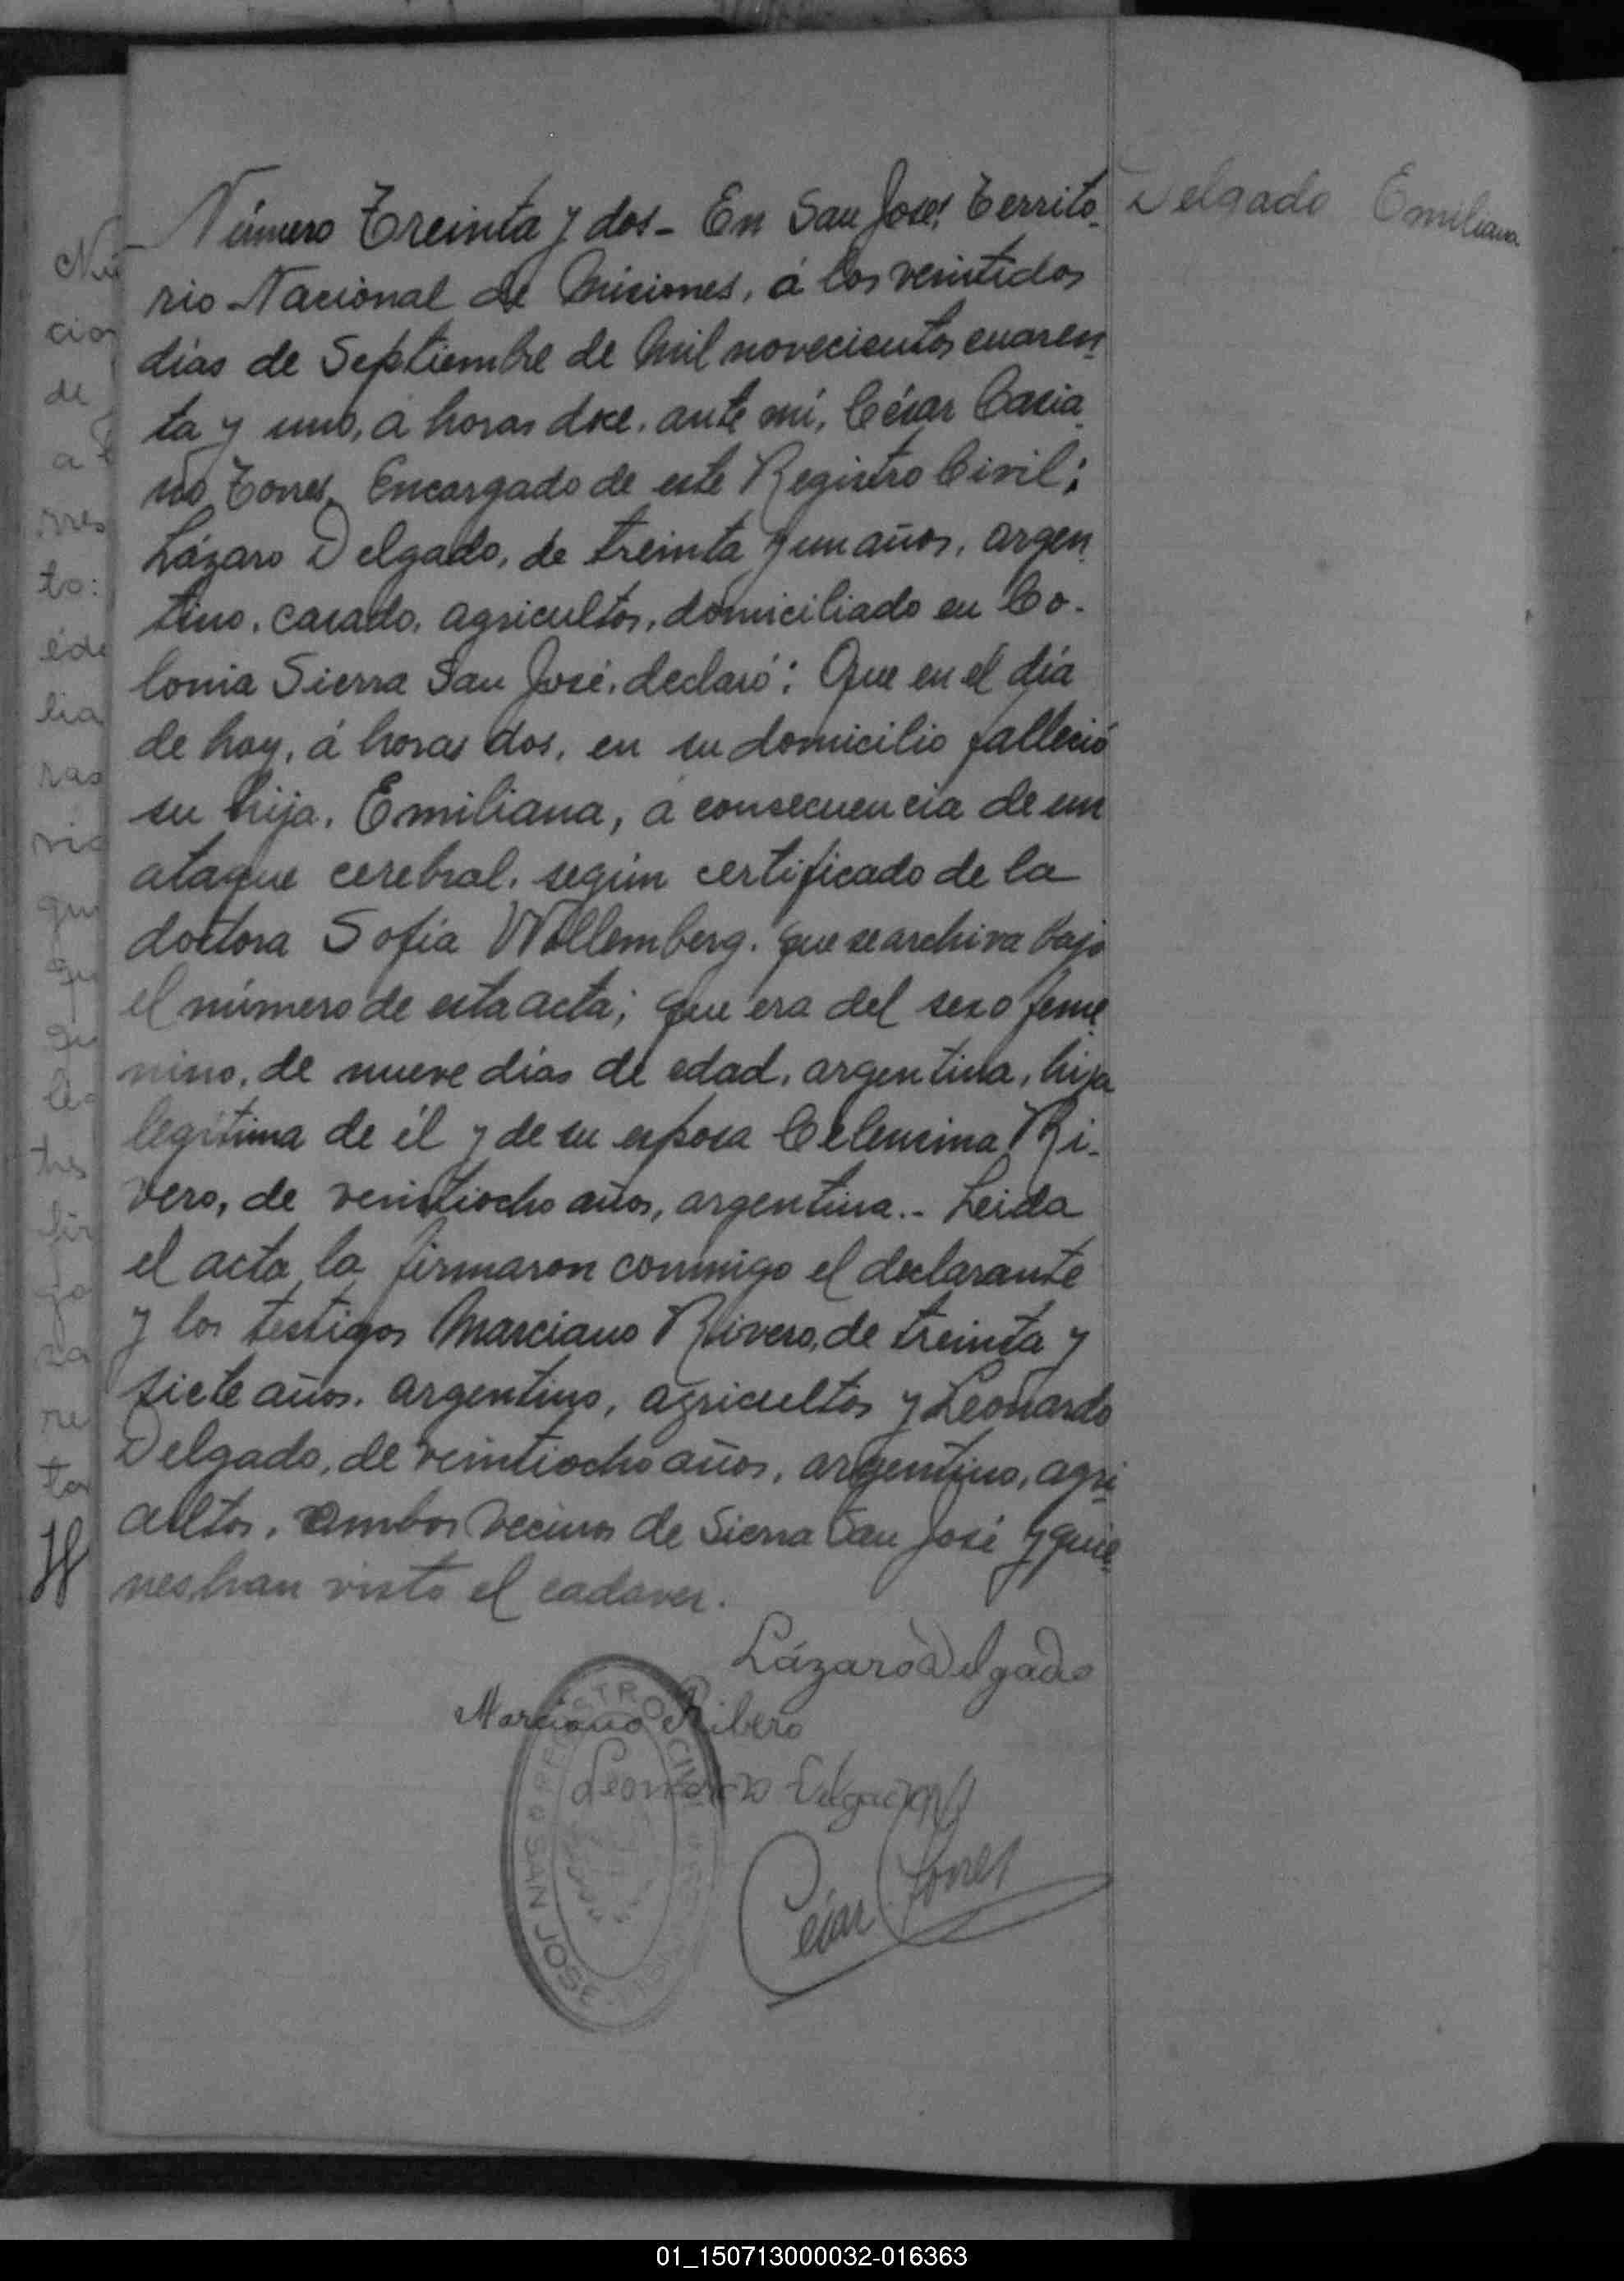 Delgado Emiliana
Número Treinta y dos - En San José, Territo-
rio Nacional de Misiones, á los veintidos
días de Septiembre de Mil novecientos cuaren-
ta y uno, a horas doce, ante mí, César Casia-
no Torres, Encargado de este Registro Civil;
Lázaro Delgado, de treinta y un años, argen-
tino, casado, agricultor, domiciliado en Co-
lonia Sierra San José, declaró: Que en el día
de hoy, á horas dos, en su domicilio falleció
su hija, Emiliana, a consecuencia de un
ataque cerebral, según certificado de la
doctora Sofía Wollemberg, que se archiva bajo
el número de esta acta; que era del sexo feme-
nino, de nueve días de edad, argentina, hija
legítima de él y de su esposa Celensina Ri-
vero, de veintiocho años, argentina.- Leida
el acta la firmaron conmigo el declarante
y los testigos Marciano Rivero, de treinta y
siete años, argentino, agricultor y Leonardo
Delgado, de veintiocho años, argentino, agri-
cultor, ambos vecinos de Sierra San José y quie-
nes han visto el cadaver.
Lázaro Delgado
Marciano Ribero
Leonardo Delgado
César Torres
REGISTRO CIVIL
SAN JOSE
01_150713000032-016363